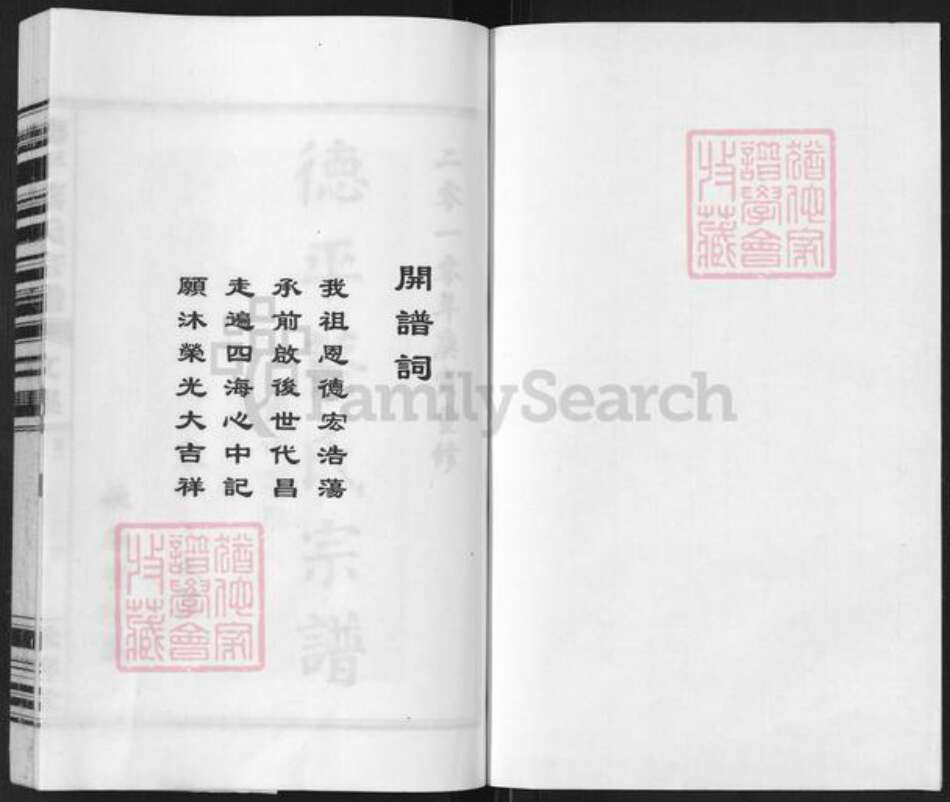 開譜詞
我祖恩德宏浩蕩
承前啟後世代昌
走遍四海心中記
願沐榮光大吉祥
猶他家
譜學會
收藏
猶他家
譜學會
收藏
FamilySearch